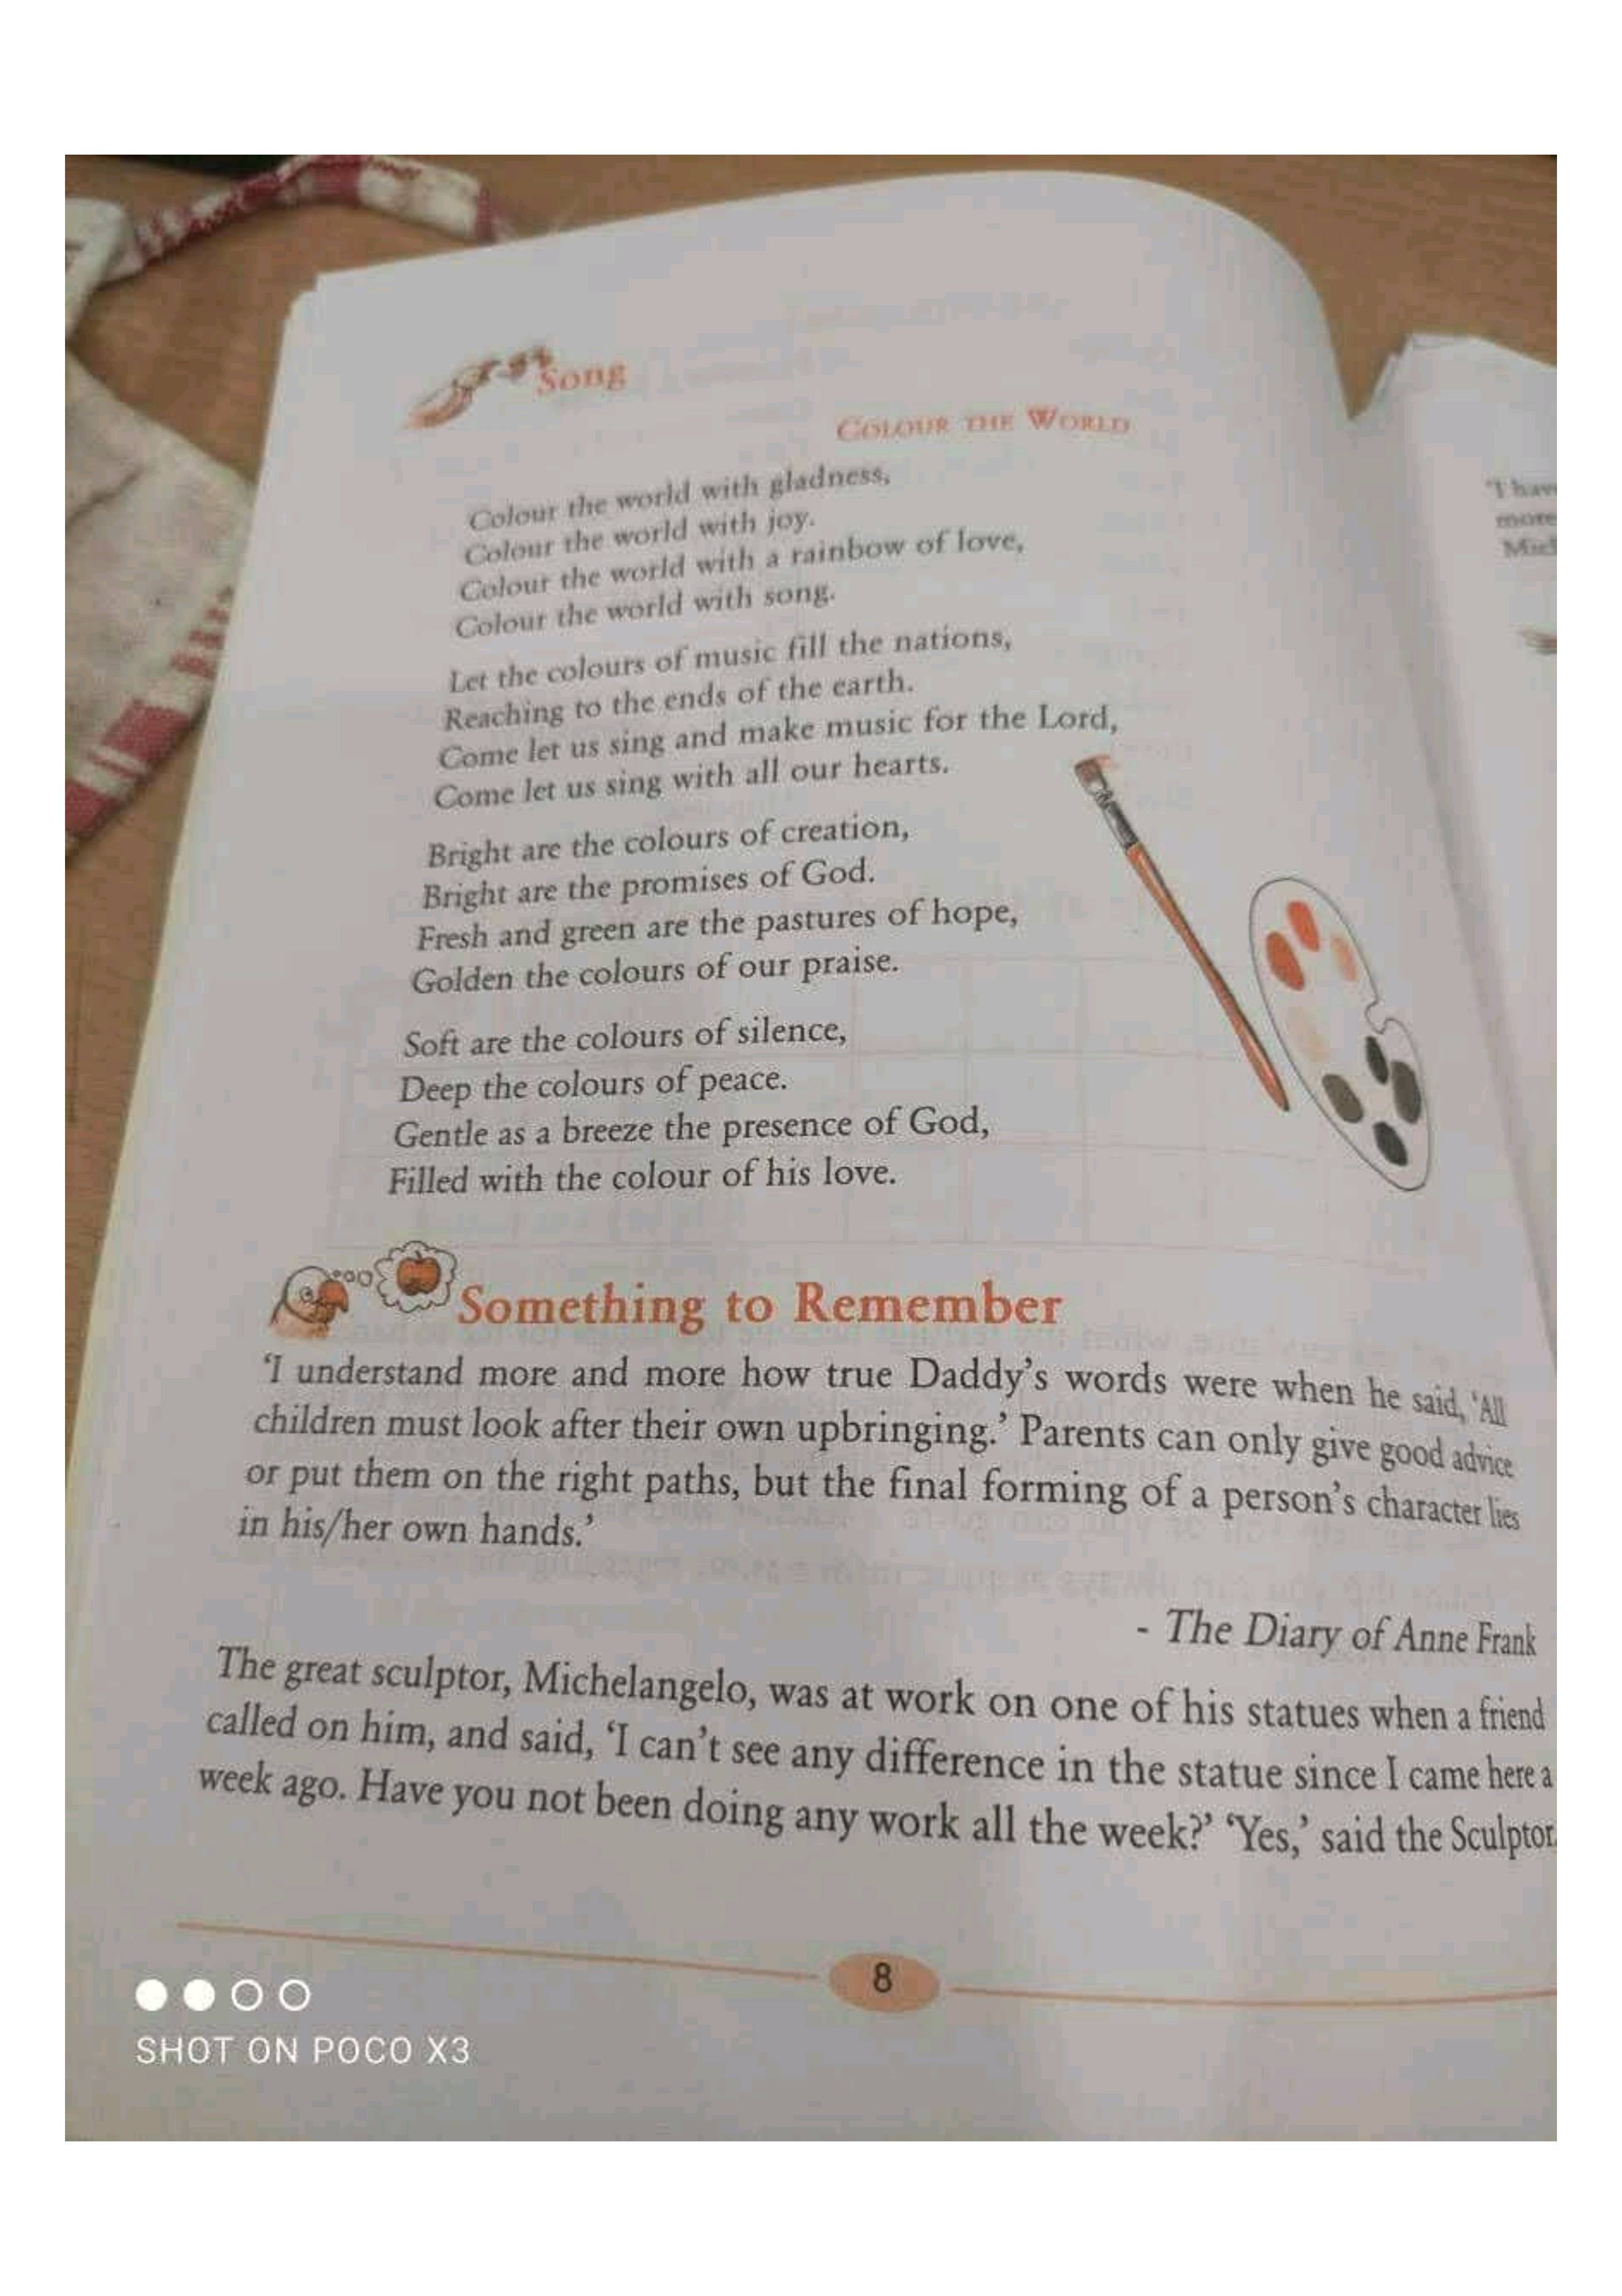 Song
COLOUR THE WORLD
Colour the world with gladness,
Colour the world with joy.
Colour the world with a rainbow of love,
Colour the world with song.
Let the colours of music fill the nations,
Reaching to the ends of the earth.
Come let us sing and make music for the Lord,
Come let us sing with all our hearts.
Bright are the colours of creation,
Bright are the promises of God.
Fresh and green are the pastures of hope,
Golden the colours of our praise.
Soft are the colours of silence,
Deep the colours of peace.
Gentle as a breeze the presence of God,
Filled with the colour of his love.
Something to Remember
‘I understand more and more how true Daddy’s words were when he said, ‘All
children must look after their own upbringing.’ Parents can only give good advice
or put them on the right paths, but the final forming of a person’s character lies
in his/her own hands.’
- The Diary of Anne Frank
The great sculptor, Michelangelo, was at work on one of his statues when a friend
called on him, and said, ‘I can’t see any difference in the statue since I came here a
week ago. Have you not been doing any work all the week?’ ‘Yes,’ said the Sculptor.
8
SHOT ON POCO X3
‘I have
more